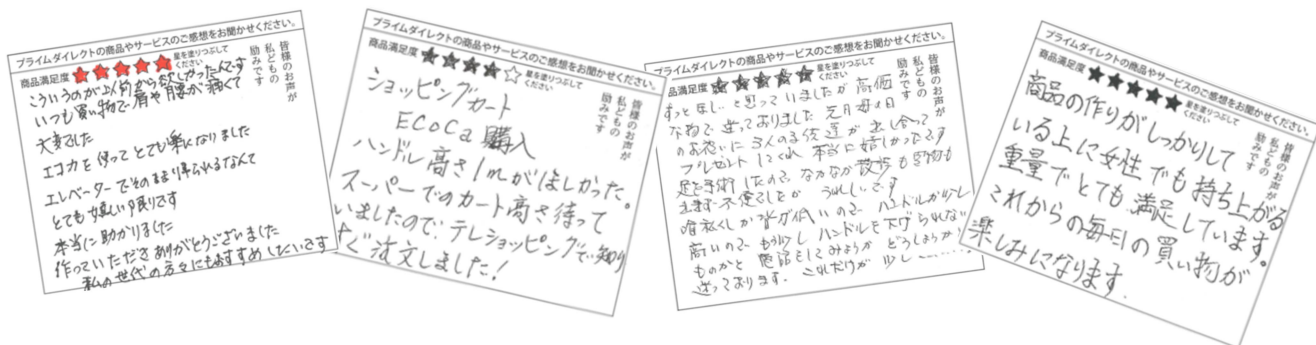 プライムダイレクトの商品やサービスのご感想をお聞かせください。
商品満足度 ★★★★★ 星を塗りつぶしてください
皆様のお声が
私どもの
励みです
こういうのが以前から欲しかったんです
いつも買い物で肩や腰が痛くて
大変でした
エコカを使ってとても楽になりました
エレベーターでそのまま乗られるなんて
とても嬉しい限りです
本当に助かりました
作っていただきありがとうございました
私の世代の方々にもおすすめしたいです
プライムダイレクトの商品やサービスのご感想をお聞かせください。
商品満足度 ★★★★☆ 星を塗りつぶしてください
皆様のお声が
私どもの
励みです
ショッピングカート
ECoCa 購入
ハンドル高さ1mがほしかった。
スーパーでのカート高さ待って
いましたので、テレショッピングで知り
すぐ注文しました!
プライムダイレクトの商品やサービスのご感想をお聞かせください。
商品満足度 ★★★★★ 星を塗りつぶしてください
皆様のお声が
私どもの
励みです
ずっとほしいと思っていましたが高価
な物で迷っておりました 5月母の日
のお祝いに3人の子供達が出し合って
プレゼントしてくれ本当に嬉しかったです
足を手術したのでなかなか散歩も買物も
出来ず不便でしたが うれしいです
背が低いので、ハンドルが少し
高いので もう少しハンドルを下げられない
ものかと電話をしてみようか どうしようか?
迷っております。これだけが少し……
プライムダイレクトの商品やサービスのご感想をお聞かせください。
商品満足度 ★★★★★ 星を塗りつぶしてください
皆様のお声が
私どもの
励みです
商品の作りがしっかりして
いる上に女性でも持ち上がる
重量でとても満足しています。
これからの毎日の買い物が
楽しみになります.